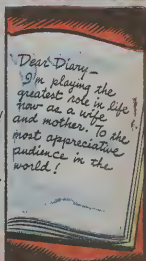 Dear Diary—
I'm playing the
greatest role in life
now as a wife
and mother. To the
most appreciative
audience in the
world!